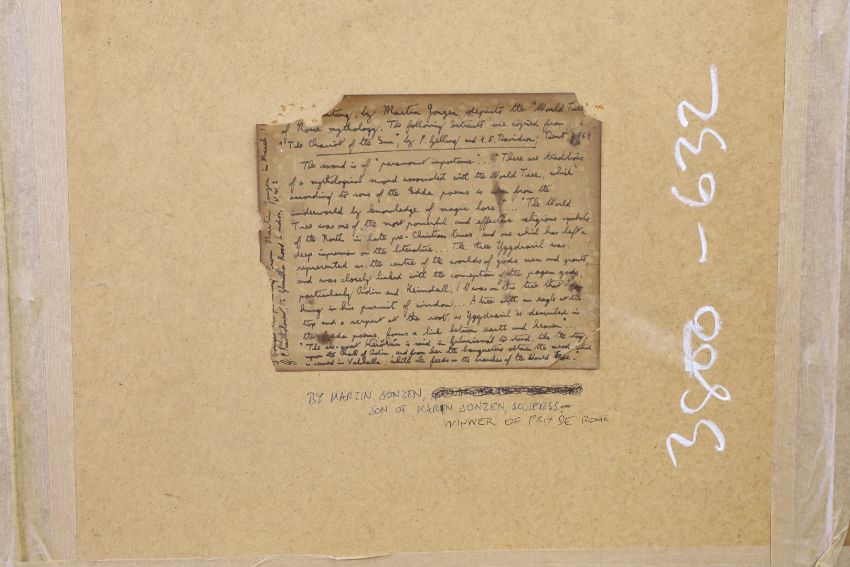 ting, by Martin Jonzen, depicts the "World Tree"
of Norse mythology. The following extracts are copied from
"The Chariot of the Sun", by P. Gelling and H. E. Davidson, Dent, 1969
The sword is of "paramount importance"... "There are traditions
of a mythological sword associated with the World Tree, which
according to one of the Edda poems is won from the
underworld by knowledge of magic lore"... "The World
Tree was one of the most powerful and effective religious symbols
of the North in late pre-Christian times, and one which has left a
deep impression on the literature... The tree Yggdrasil was
represented as the centre of the worlds of gods men and giants,
and was closely linked with the conception of the pagan gods,
particularly Odin and Heimdall. It was on this tree that
hung in his pursuit of wisdom... A tree with an eagle at the
top and a serpent at the root, as Yggdrasil is described in
the Edda poems, forms a link between earth and heaven...
"The said, in to stand, like the stag,
upon the Hall of Odin, and from her the banqueters obtain the mead which
is served in Valhalla while she feeds on the branches of the World Tree."
from Martin Jonzen in March
Road London
BY MARTIN JONZEN,
SON OF KARIN JONZEN, SCULPTRESS,
WINNER OF PRIX DE ROME
3800-632